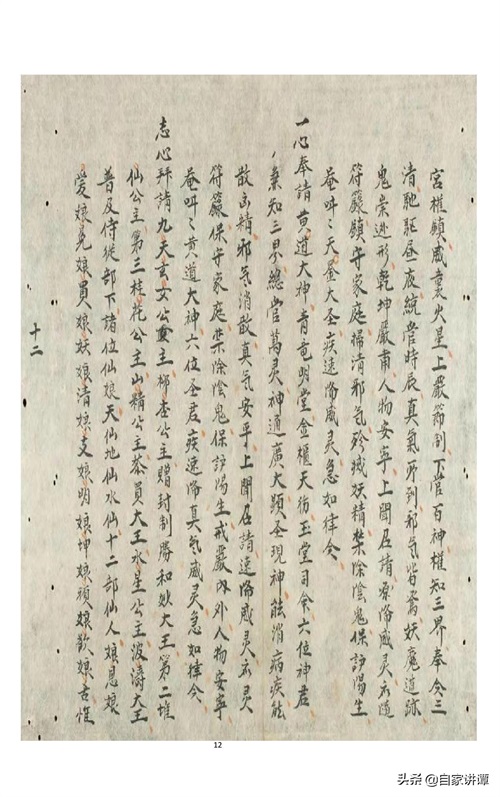 宮權願威裏火星上嚴節制下管百神權知三界奉令三
清馳駈昼夜統管時辰真氣所到邪气皆斋妖魔遁跡
鬼祟逃形乾坤嚴甫人物安寧上聞居請寮降威灵符隨
符籙願守家庭掃清邪气殄滅妖精禁除陰鬼保護陽生
奄吽々天星大圣疾速降威灵急如律令
一心奉請黄道大神青竜明堂金櫃天德玉堂司命六位神君
兼知三界總管萬灵神通廣大顕圣現神能消病疾能
散凶精邪气消散真气安平上聞居請速降威灵灵
符籙保守家庭禁除陰鬼保護陽生戒嚴內外人物安寧
奄吽々黄道大神六位圣君疾速降真气威灵急如律令
志心拜請九天玄女公主柳杏公主贈封制勝和妙大王第二堆
仙公主第三桂花公主山精公主茶員大王水星公主波濤大王
普及侍従部下諸位仙娘天仙地仙水仙十二部仙人娘恩娘
愛娘晃娘員娘妖娘清娘支娘明娘坤娘順娘歡娘吉惟
十二
12
头条@自家讲谭